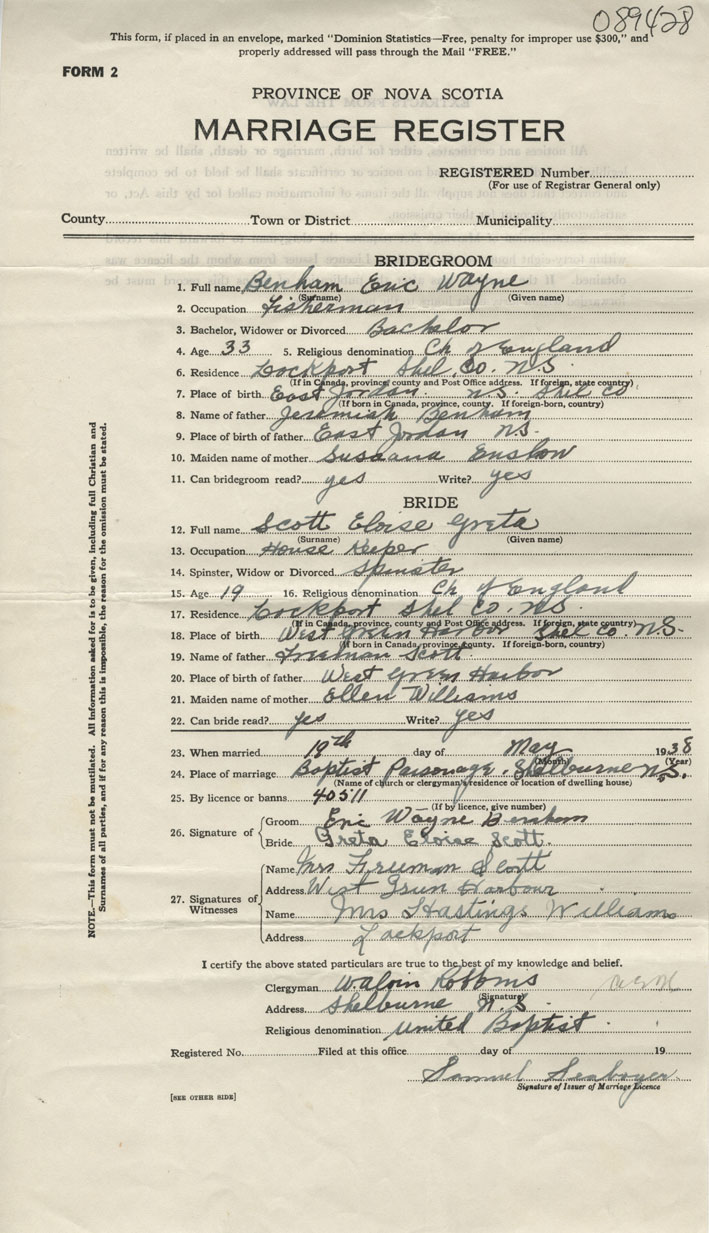 089428
This form, if placed in an envelope, marked "Dominion Statistics—Free, penalty for improper use $300," and
properly addressed will pass through the Mail "FREE."
FORM 2
PROVINCE OF NOVA SCOTIA
MARRIAGE REGISTER
REGISTERED Number
(For use of Registrar General only)
County Town or District Municipality
BRIDEGROOM
1. Full name Benham Eric Wayne
(Surname) (Given name)
2. Occupation Fisherman
3. Bachelor, Widower or Divorced Bachelor
4. Age 33 5. Religious denomination Ch of England
6. Residence Lockport Shel. Co. N.S.
(If in Canada, province, county and Post Office address. If foreign, state country)
7. Place of birth East Jordan N.S. Shel Co
(If born in Canada, province, county. If foreign-born, country)
8. Name of father Jeremiah Benham
9. Place of birth of father East Jordan N.S.
10. Maiden name of mother Susaana Enslow
11. Can bridegroom read? yes Write? yes
BRIDE
12. Full name Scott Eloise Greta
(Surname) (Given name)
13. Occupation House Keeper
14. Spinster, Widow or Divorced Spinster
15. Age 19 16. Religious denomination Ch of England
17. Residence Lockport Shel Co. N.S.
(If in Canada, province, county and Post Office address. If foreign, state country)
18. Place of birth West Green Harbor Shel Co. N.S.
(If born in Canada, province, county. If foreign-born, country)
19. Name of father Freeman Scott
20. Place of birth of father West Green Harbor
21. Maiden name of mother Ellen Williams
22. Can bride read? yes Write? yes
23. When married 19th day of May 1938
(Month) (Year)
24. Place of marriage Baptist Parsonage, Shelburne N.S.
(Name of church or clergyman's residence or location of dwelling house)
25. By licence or banns 40511
(If by licence, give number)
26. Signature of Groom Eric Wayne Benham
Bride Greta Eloise Scott.
27. Signatures of Witnesses
Name Mrs Freeman Scott
Address West Green Harbour
Name Mrs Hastings Williams
Address Lockport
I certify the above stated particulars are true to the best of my knowledge and belief.
Clergyman Robbins
(Signature)
Address Shelburne N.S.
Religious denomination United Baptist
Registered No. Filed at this office day of 19
Samuel Seaboyer
Signature of Issuer of Marriage Licence
[SEE OTHER SIDE]
NOTE.—This form must not be mutilated. All information asked for is to be given, including full Christian and
Surnames of all parties, and if for any reason this is impossible, the reason for the omission must be stated.